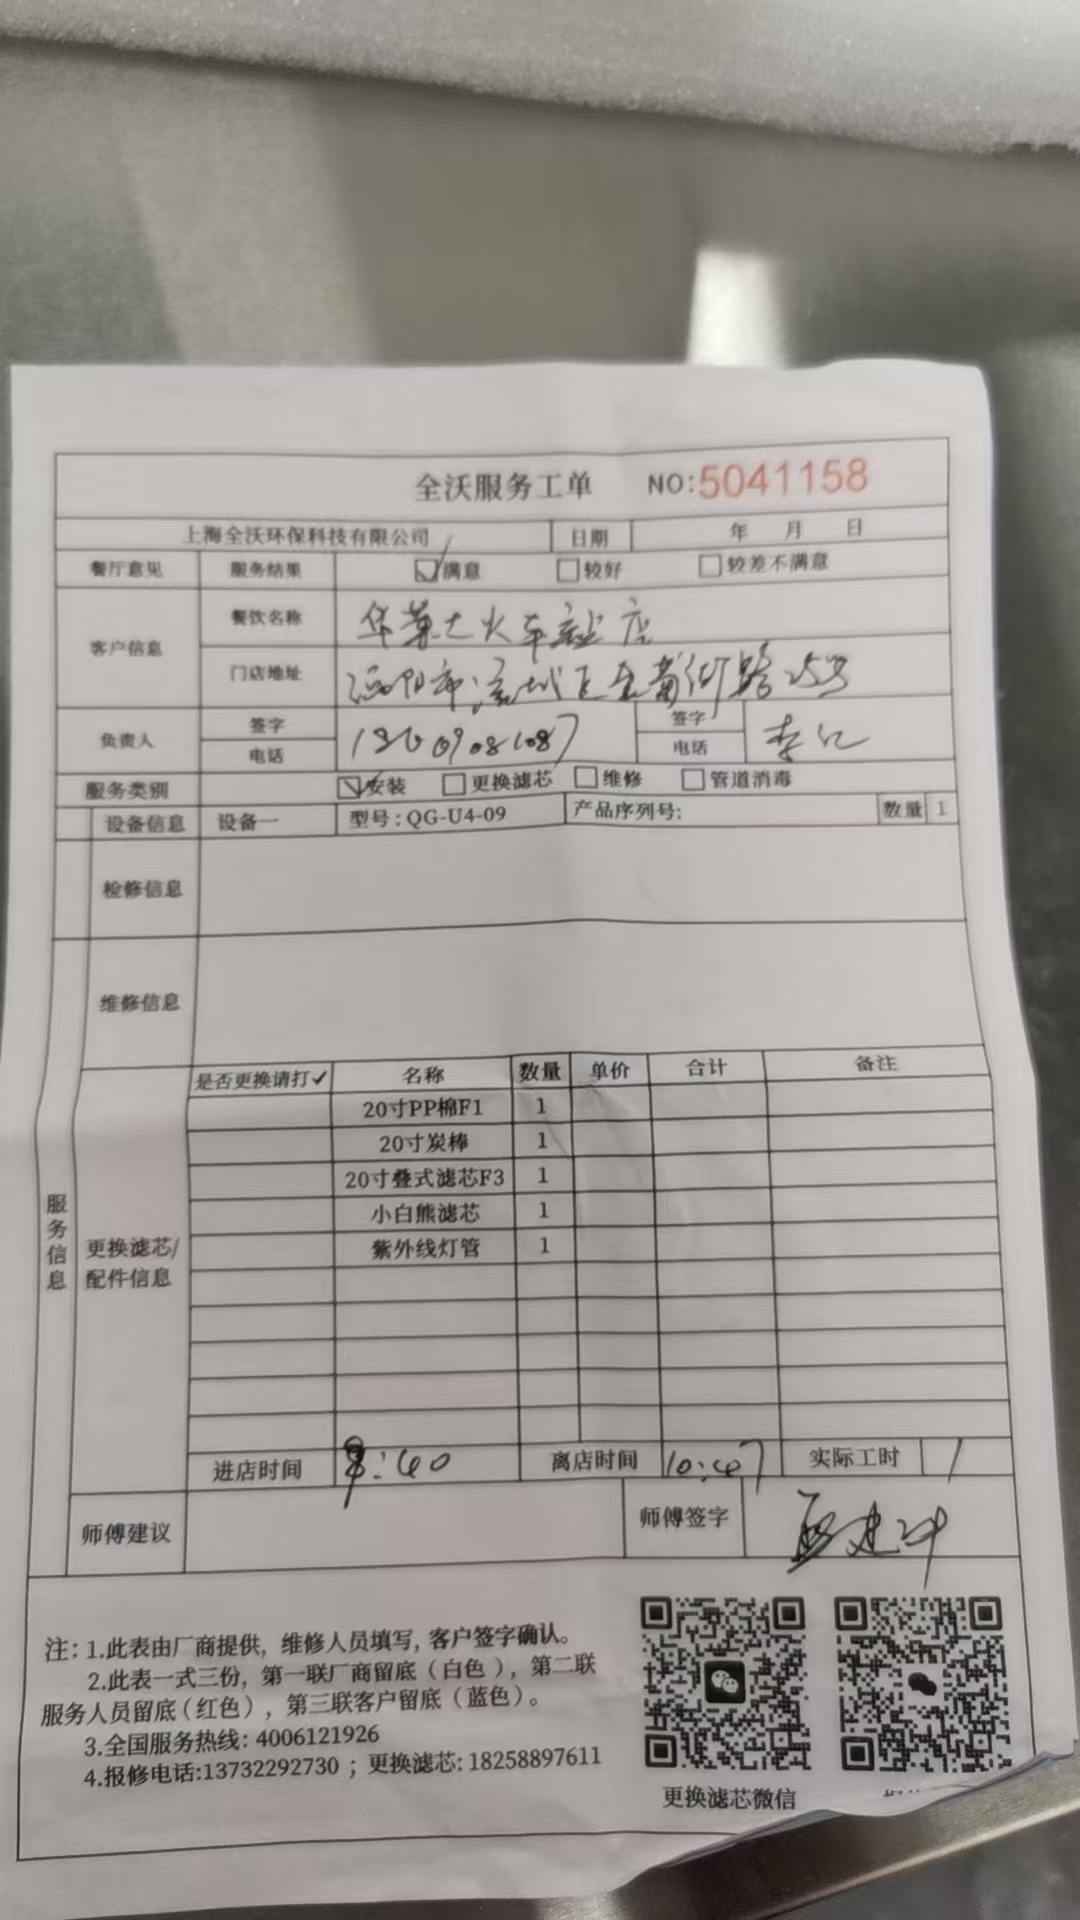 全沃服务工单 NO:5041158
上海全沃环保科技有限公司 日期 年 月 日
餐厅意见 服务结果 满意 较好 较差不满意
客户信息 餐饮名称 华莱士火车站店
门店地址 市 区 25号
负责人 签字 签字
电话 电话 李
服务类别 安装 更换滤芯 维修 管道消毒
设备信息 设备一 型号:QG-U4-09 产品序列号: 数量 1
检修信息
维修信息
服务信息
更换滤芯/配件信息
是否更换请打✓ 名称 数量 单价 合计 备注
20寸PP棉F1 1
20寸炭棒 1
20寸叠式滤芯F3 1
小白熊滤芯 1
紫外线灯管 1
进店时间 :40 离店时间 10:47 实际工时 1
师傅建议 师傅签字
注:1.此表由厂商提供，维修人员填写,客户签字确认。
2.此表一式三份，第一联厂商留底（白色），第二联
服务人员留底(红色)，第三联客户留底（蓝色）。
3.全国服务热线: 4006121926
4.报修电话:13732292730 ；更换滤芯: 18258897611
更换滤芯微信